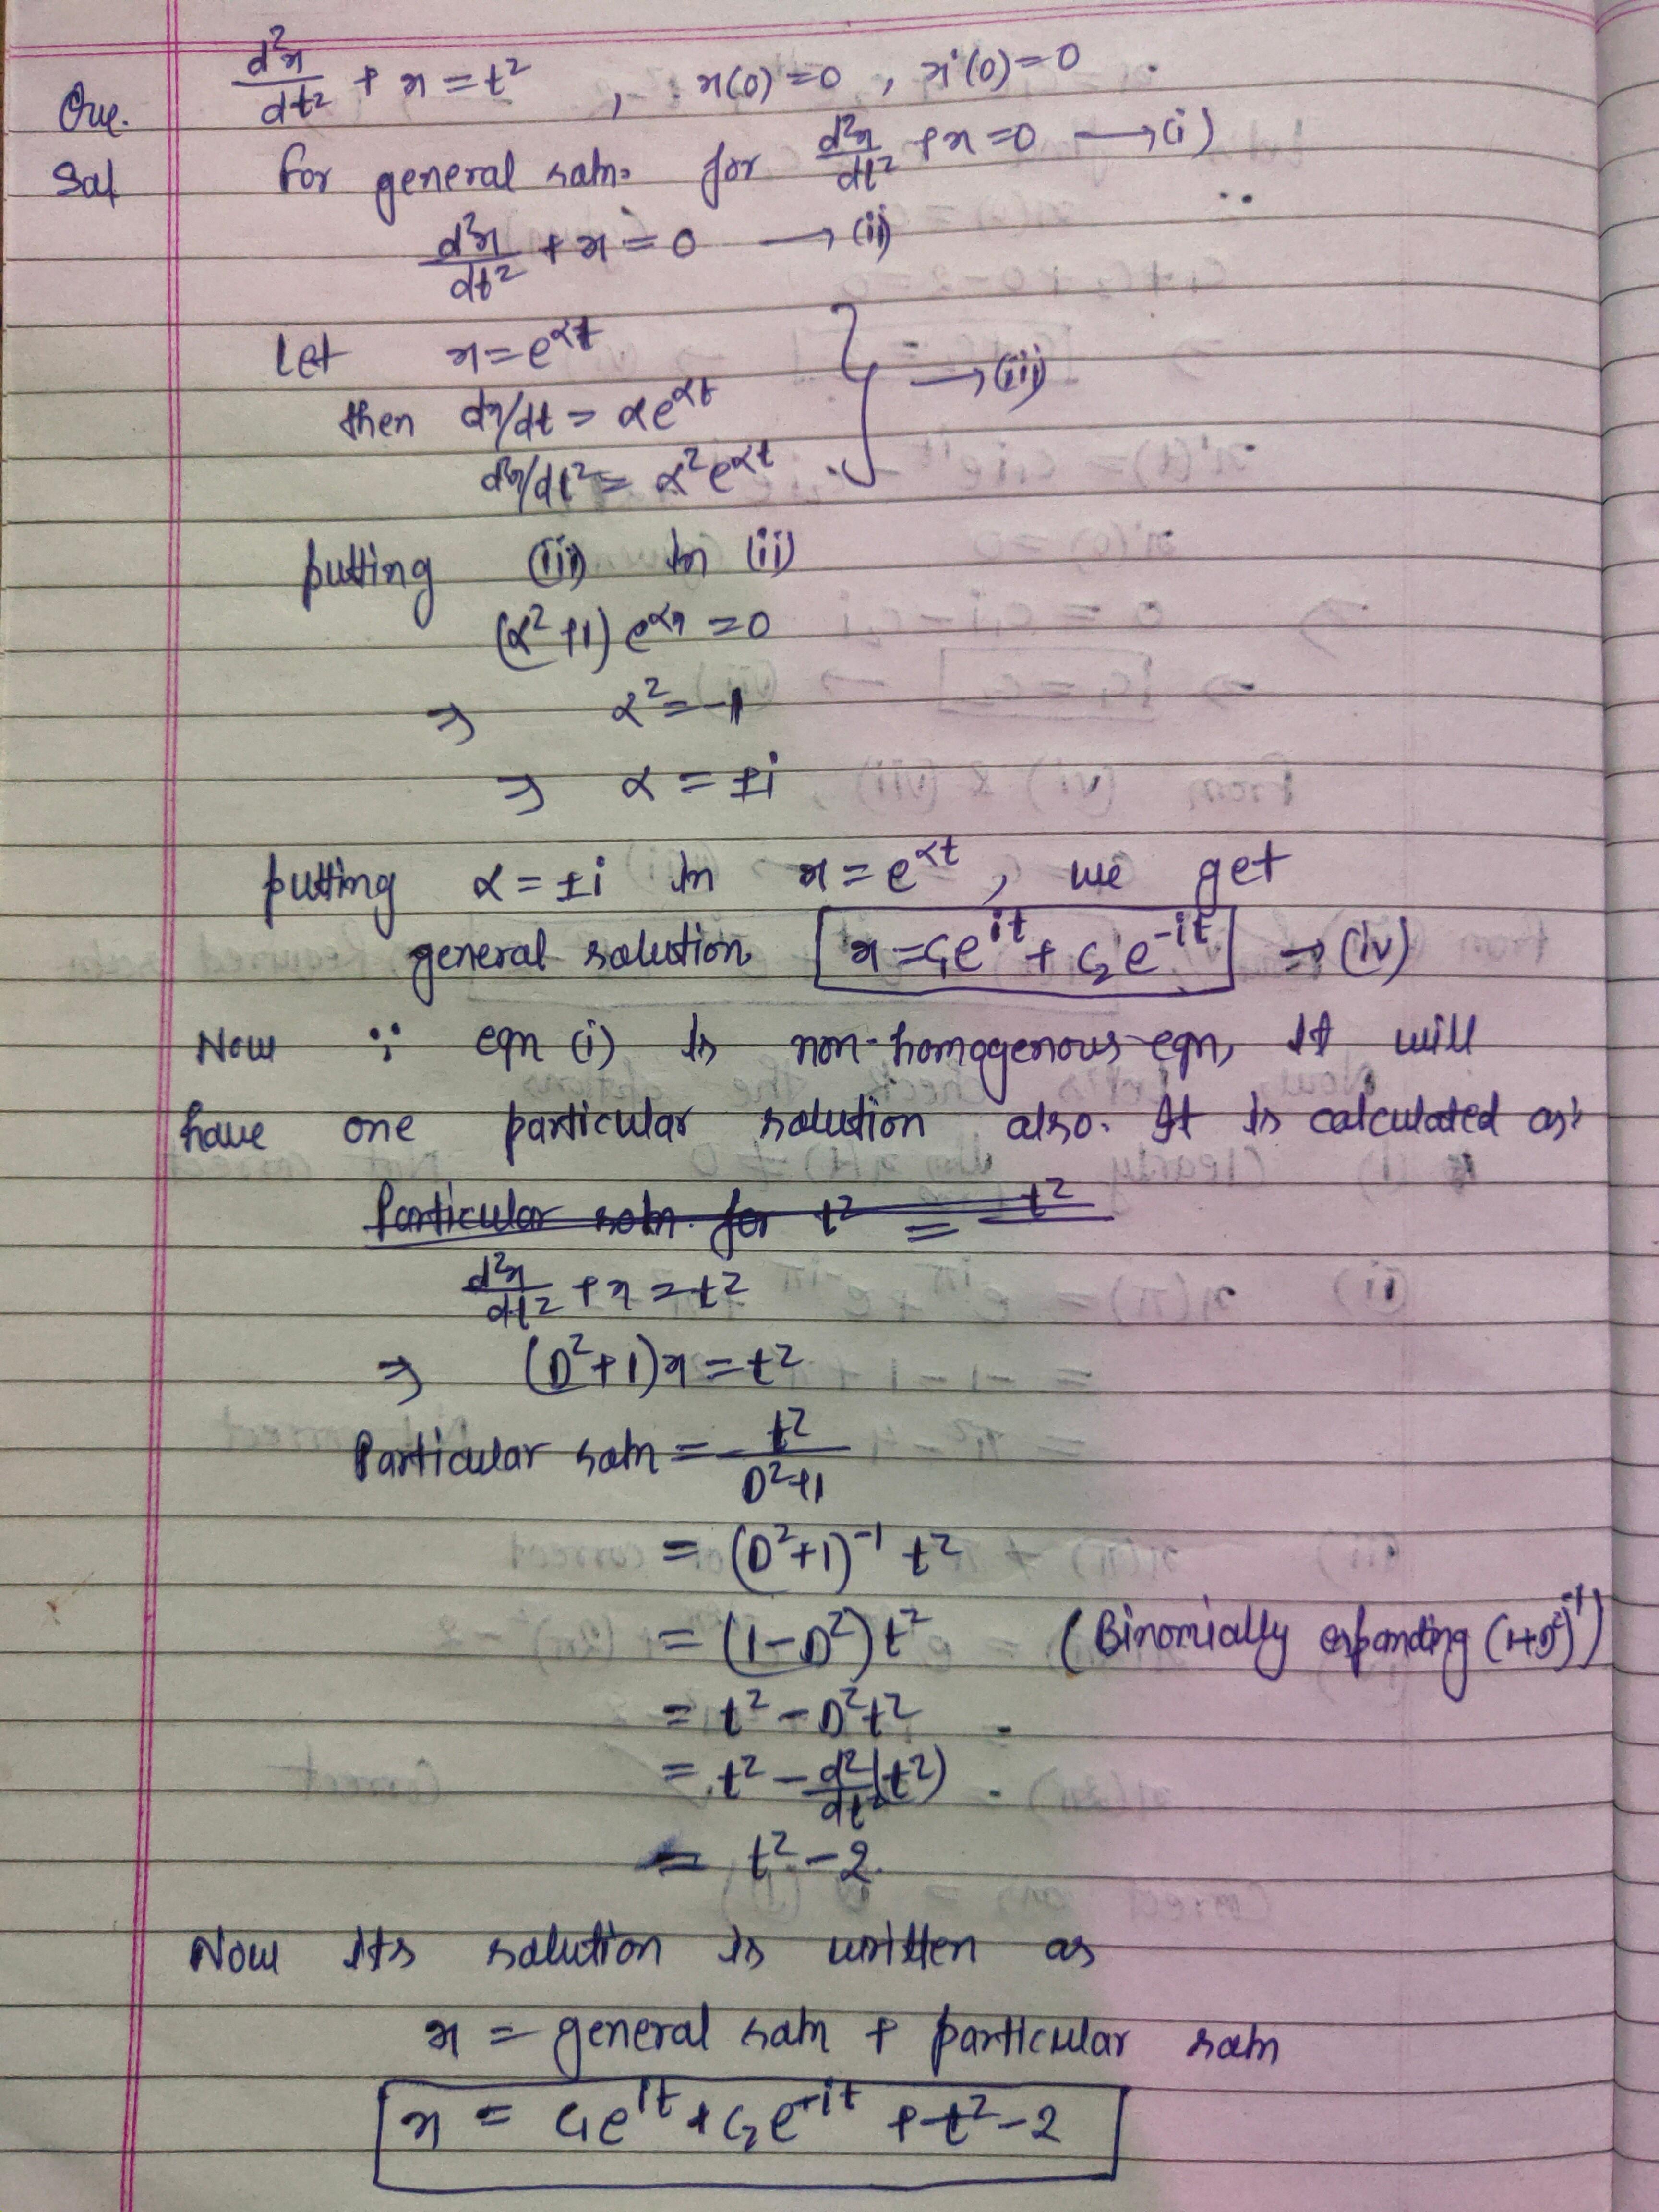 Que. d²x/dt² + x = t² , x(0)=0 , x'(0)=0
Sol for general soln. for d²x/dt² + x = 0 → (i)
d²x/dt² + x = 0 → (ii)
Let x = e^αt
then dx/dt = αe^αt → (iii)
d²x/dt² = α²e^αt
putting (iii) in (ii)
(α²+1) e^αx = 0
⇒ α² = -1
⇒ α = ±i
putting α = ±i in x = e^αt , we get
general solution x = c₁e^it + c₂e^-it → (iv)
Now ∵ eqn (i) is non-homogenous eqn, it will
have one particular solution also. It is calculated as:
Particular soln. for t² = t²
d²x/dt² + x = t²
⇒ (D²+1)x = t²
Particular soln = t²/D²+1
= (D²+1)⁻¹ t²
= (1-D²)t² (Binomially expanding (1+D²)⁻¹)
= t² - D²t²
= t² - d²/dt²(t²)
= t² - 2
Now its solution is written as
x = general soln + particular soln
x = c₁e^it + c₂e^-it + t² - 2